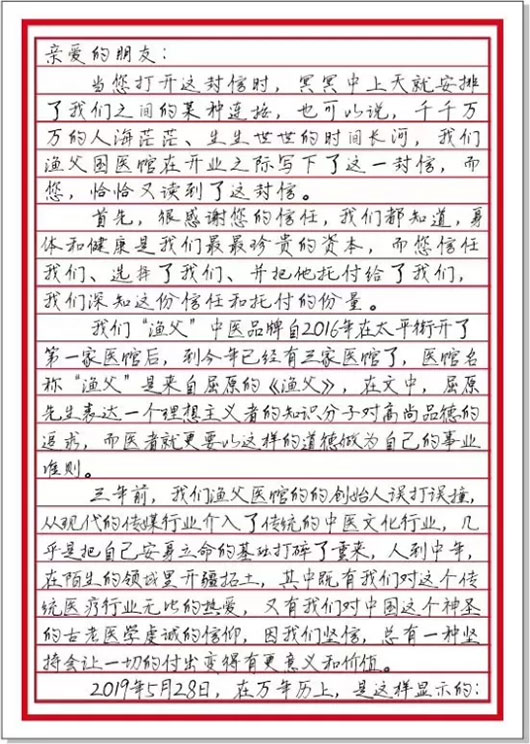 亲爱的朋友：
当您打开这封信时，冥冥中上天就安排
了我们之间的某种连接，也可以说，千千万
万的人海茫茫、生生世世的时间长河，我们
渔父国医馆在开业之际写下了这一封信，而
您，恰恰又读到了这封信。
首先，很感谢您的信任，我们都知道，身
体和健康是我们最最珍贵的资本，而您信任
我们、选择了我们、并把他托付给了我们，
我们深知这份信任和托付的份量。
我们“渔父”中医品牌自2016年在太平街开了
第一家医馆后，到今年已经有三家医馆了，医馆名
称“渔父”是来自屈原的《渔父》，在文中，屈原
先生表达一个理想主义者的知识分子对高尚品德的
追求，而医者就更要以这样的道德做为自己的事业
准则。
三年前，我们渔父医馆的的创始人误打误撞，
从现代的传媒行业介入了传统的中医文化行业，几
乎是把自己安身立命的基础打碎了重来，人到中年，
在陌生的领域里开疆拓土，其中既有我们对这个传
统医疗行业无比的热爱，又有我们对中国这个神圣
的古老医学虔诚的信仰，因我们坚信，总有一种坚
持会让一切的付出变得有更意义和价值。
2019年5月28日，在万年历上，是这样显示的：